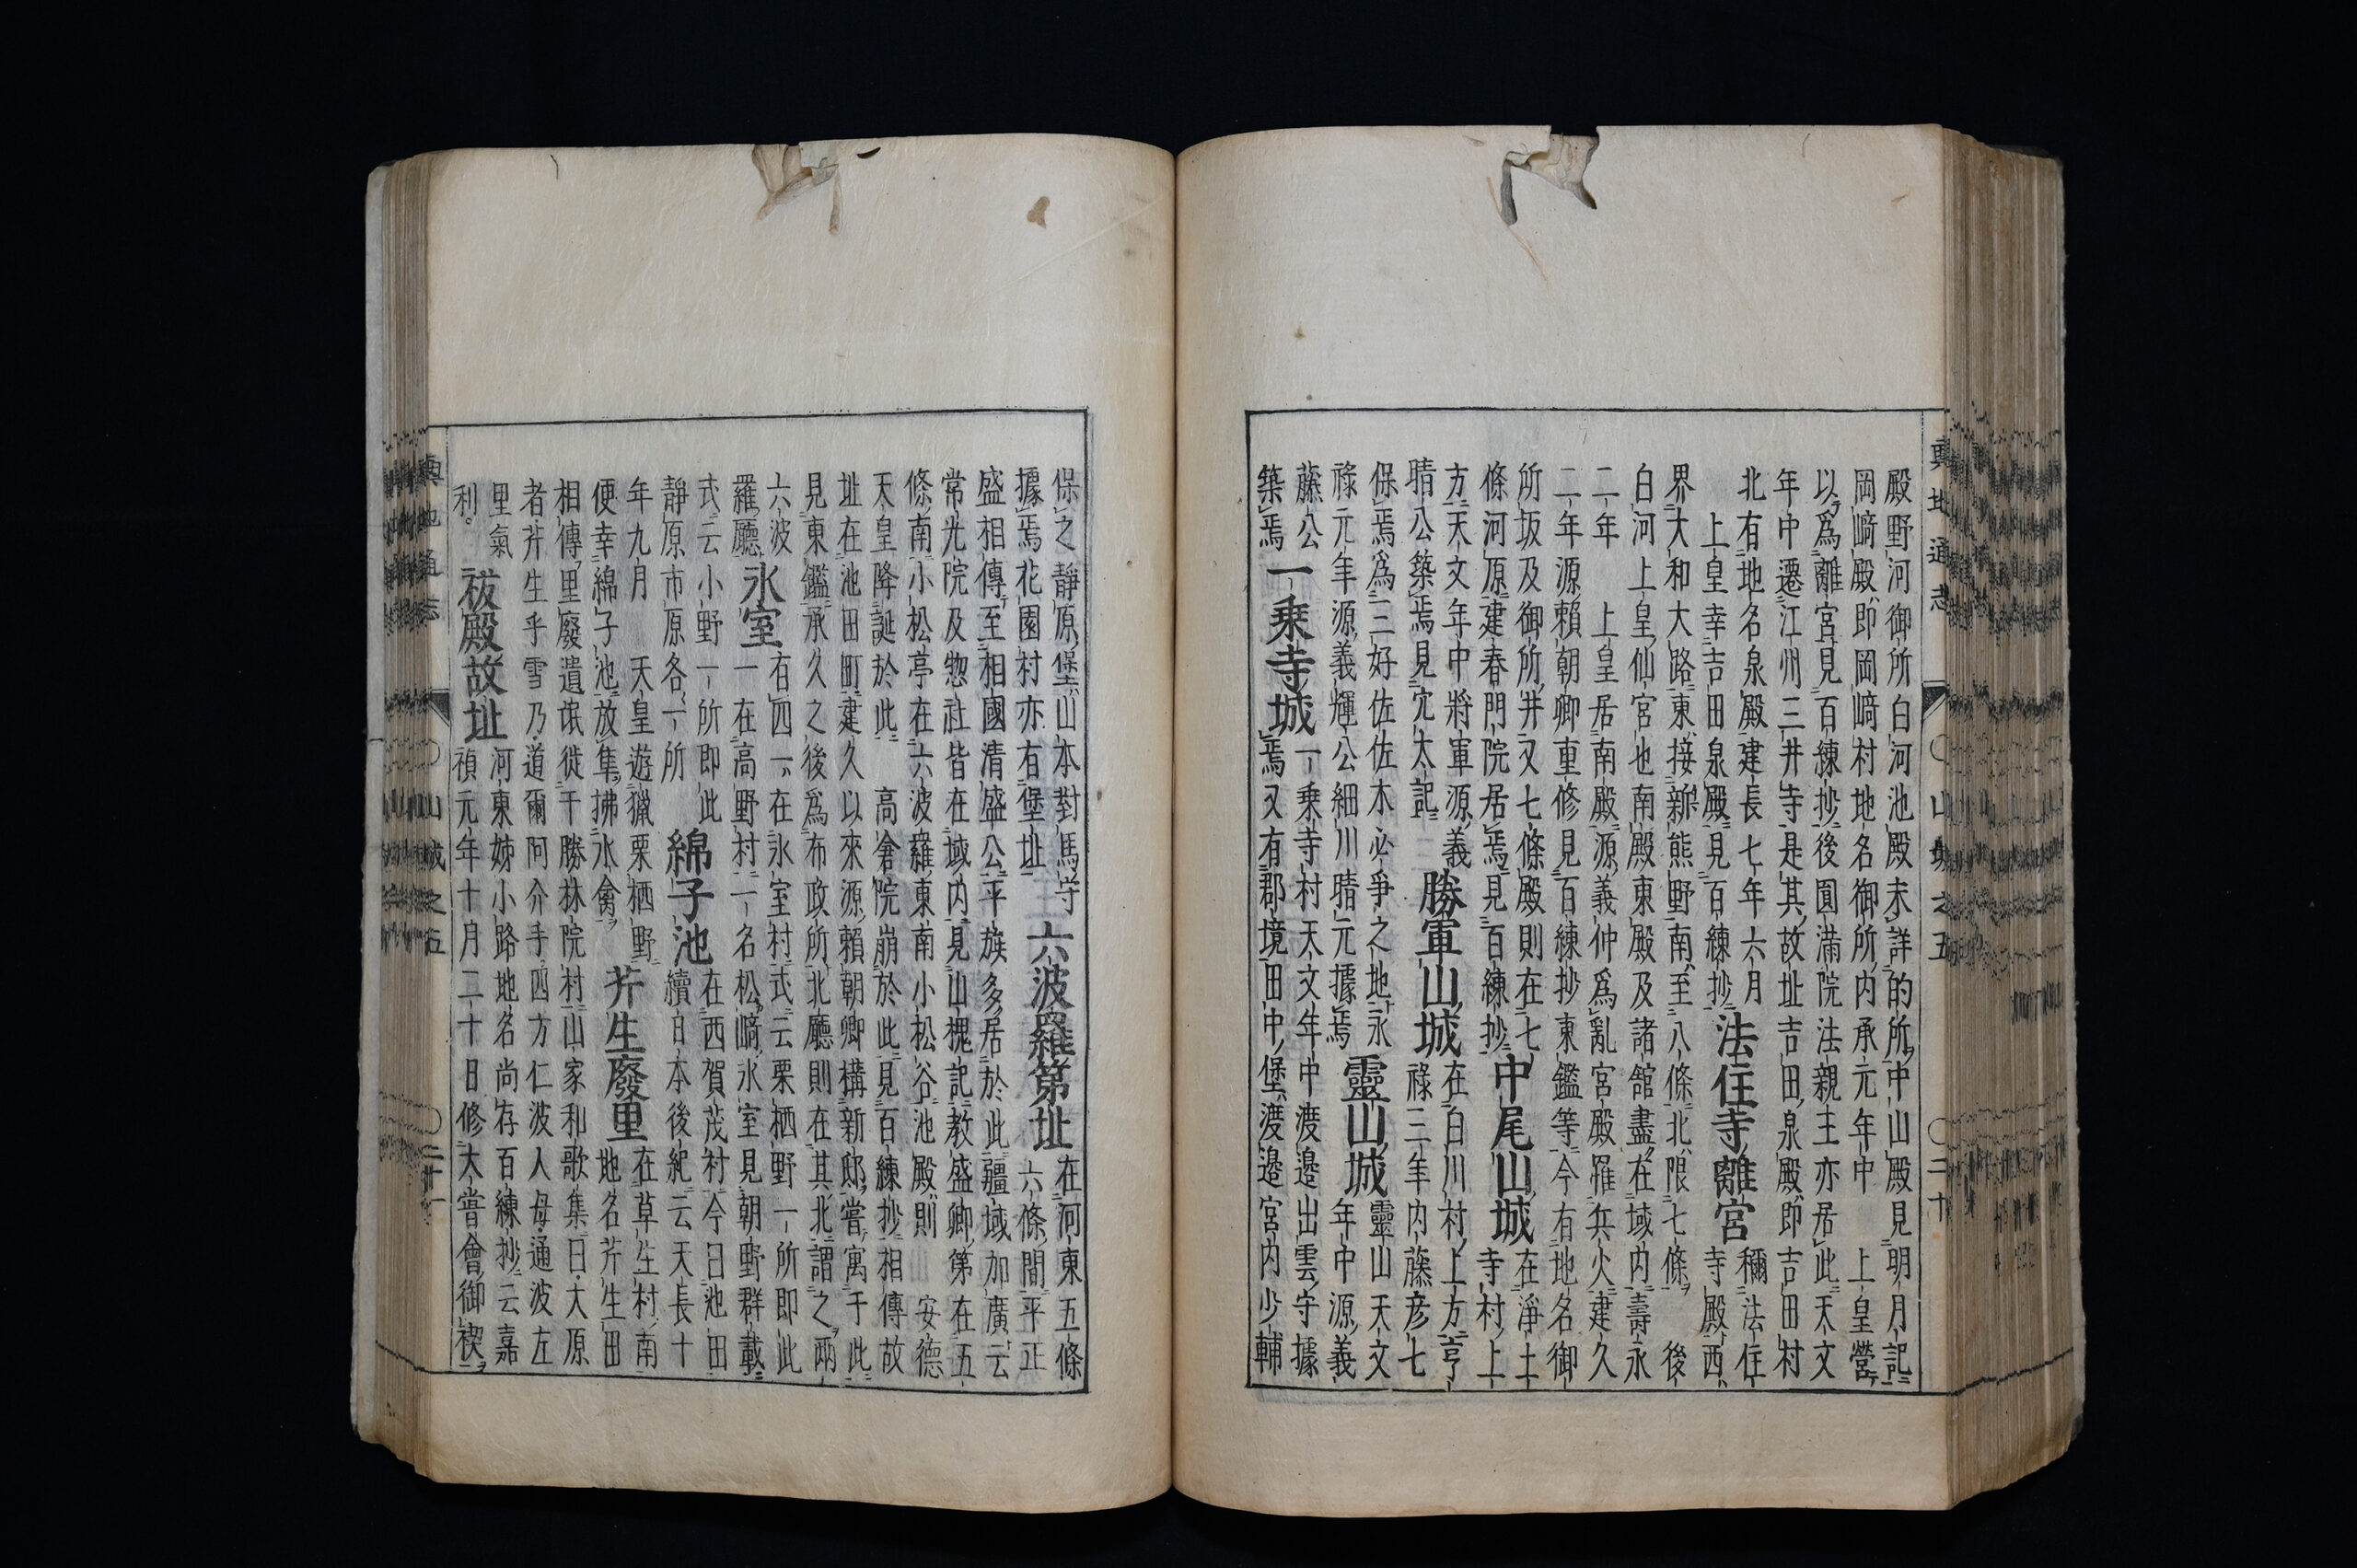 輿地通志 〇山城之五 〇二十
殿野河御所白河池殿未詳的所中山殿見明月記
岡﨑殿即岡﨑村地名御所内承元年中 上皇營
以爲離宮見百練抄後圓滿院法親王亦居此天文
年中遷江州三井寺是其故址吉田泉殿即吉田村
北有地名泉殿建長七年六月
上皇幸吉田泉殿見百練抄
法住寺離宮
稱法住
寺殿西
界大和大路東接新熊野南至八條北限七條 後
白河上皇仙宮也南殿東殿及諸館盡在域内壽永
二年 上皇居南殿源義仲爲亂宮殿罹兵火建久
二年源頼朝卿重修見百練抄東鑑等今有地名御
所坂及御所井又七條殿則在七
條河原建春門院居焉見百練抄
中尾山城
在淨土
寺村上
方天文年中將軍源義
晴公築焉見宂太記
勝軍山城
在白川村上方亨
祿三年内藤彦七
保焉爲三好佐佐木必爭之地永
祿元年源義輝公細川晴元據焉
靈山城
靈山天文
年中源義
藤公
築焉
一乗寺城
一乗寺村天文年中渡邉出雲守據
焉又有郡境田中堡渡邉宮内少輔
保之靜原堡山本對馬守
據焉花園村亦有堡址
六波羅第址
在河東五條
六條間平正
盛相傳至相國清盛公平族多居於此疆域加廣云
常光院及惣社皆在域内見山槐記教盛卿第在五
條南小松亭在六波羅東南小松谷池殿則 安德
天皇降誕於此 高倉院崩於此見百練抄相傳故
址在池田町建久以來源頼朝卿構新邸嘗寓于此
見東鑑承久之後爲布政所北廳則在其北謂之兩
六波
羅廳
氷室
有四一在氷室村式云栗栖野一所即此
一在高野村一名松﨑氷室見朝野群載
式云小野一所即此
靜原市原各一所
綿子池
在西賀茂村今曰池田
續日本後紀云天長十
年九月 天皇遊獵栗栖野
便幸綿子池放隼拂水禽
芹生廢里
在草生村南
地名芹生田
相傳里廢遺氓徙于勝林院村山家和歌集曰大原
者芹生乎雪乃道爾阿介手四方仁波人母通波左
里氣
利。
祓殿故址
河東姉小路地名尚存百練抄云嘉
禎元年十月二十日修大嘗會御禊
輿地通志 〇山城之五 〇二十一